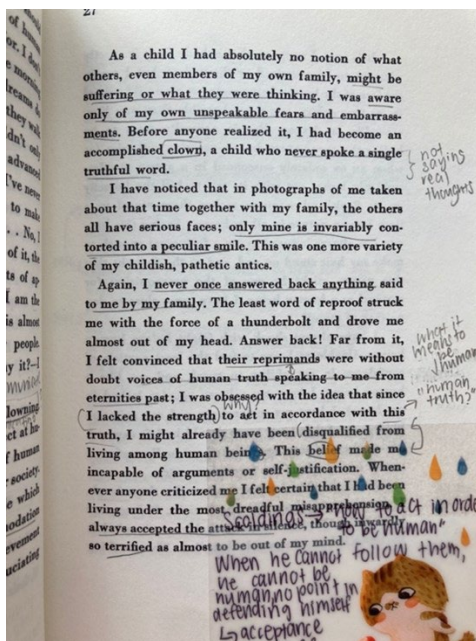 27
As a child I had absolutely no notion of what
others, even members of my own family, might be
suffering or what they were thinking. I was aware
only of my own unspeakable fears and embarrass-
ments. Before anyone realized it, I had become an
accomplished clown, a child who never spoke a single
truthful word.
not
saying
real
thoughts
I have noticed that in photographs of me taken
about that time together with my family, the others
all have serious faces; only mine is invariably con-
torted into a peculiar smile. This was one more variety
of my childish, pathetic antics.
Again, I never once answered back anything said
to me by my family. The least word of reproof struck
me with the force of a thunderbolt and drove me
almost out of my head. Answer back! Far from it,
I felt convinced that their reprimands were without
doubt voices of human truth speaking to me from
eternities past; I was obsessed with the idea that since
why?
(I lacked the strength) to act in accordance with this
truth, I might already have been (disqualified from
living among human beings. This belief made me
incapable of arguments or self-justification. When-
ever anyone criticized me I felt certain that I had been
living under the most dreadful misapprehension. I
always accepted the attack in silence, though inwardly
so terrified as almost to be out of my mind.
what it
means to
be
human
"human
truth?"
Scoldings → "how to act in order
to be human"
When he cannot follow them,
he cannot be
human, no point in
defending himself
↳ acceptance